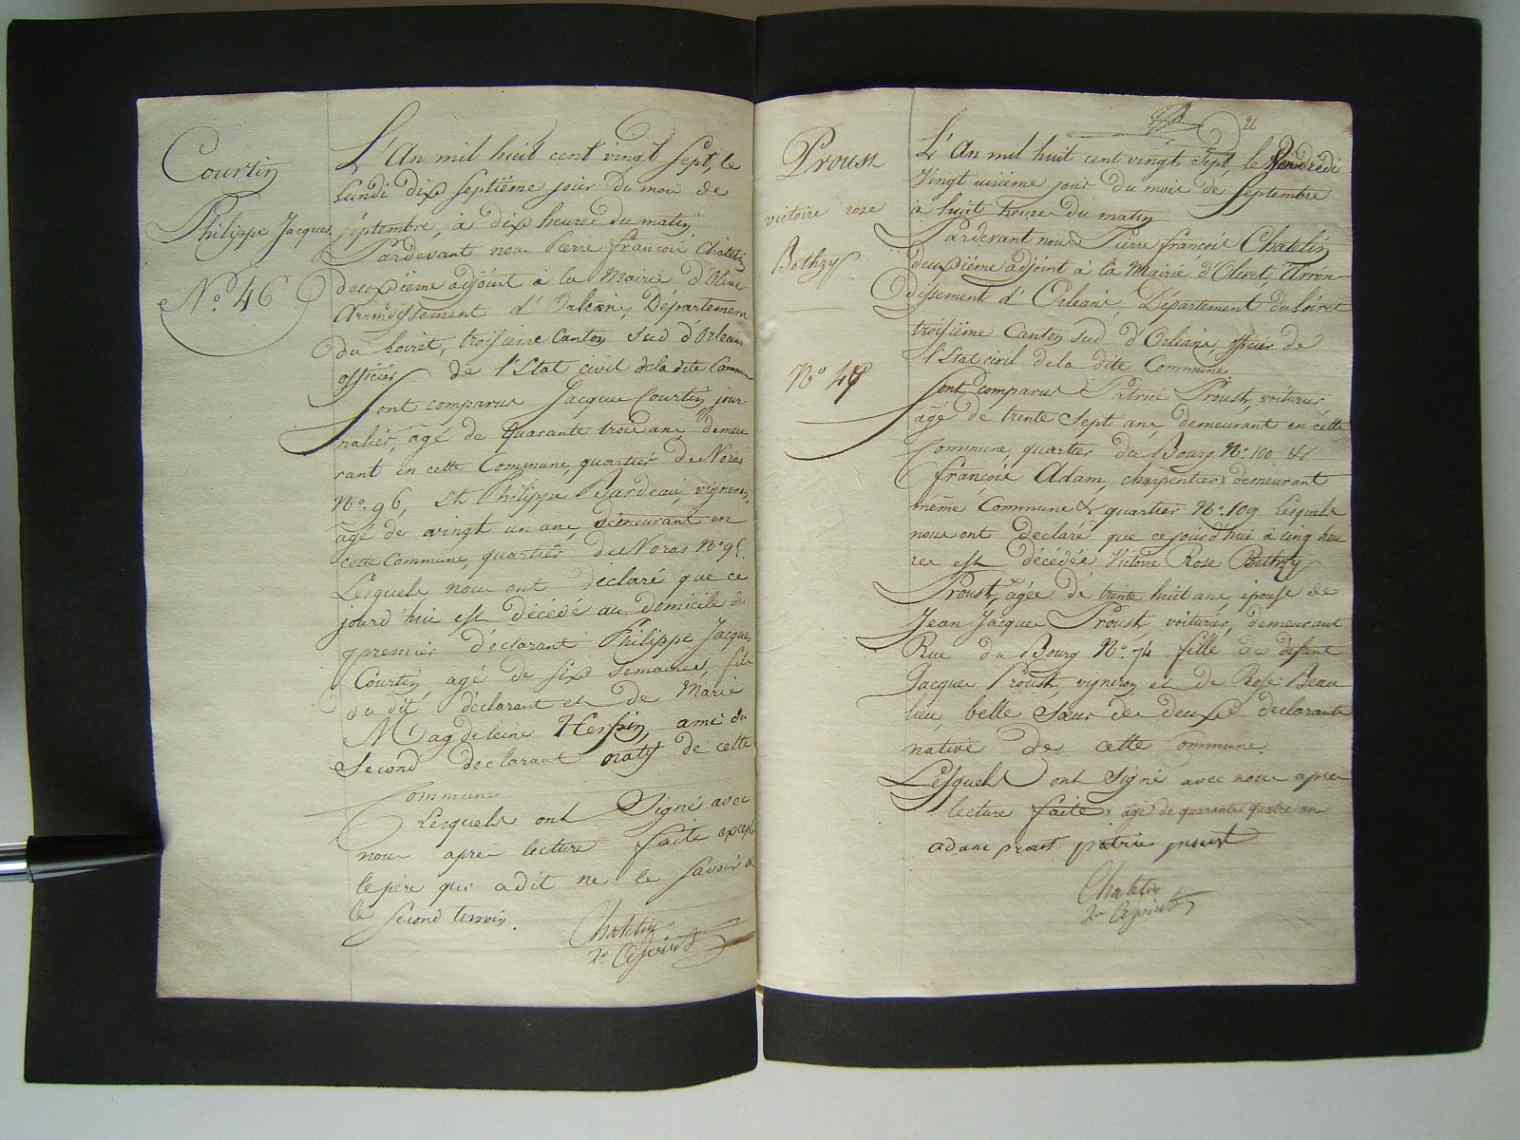 Courtin
Philippe Jacques
N.o 46
L'An mil huit cent vingt Sept, le
Lundi dix septième jour du moi de
septembre, à dix heures du matin
Pardevant nous Pierre françois Chatelin
deuxième adjoint à la Mairie d'Olivet
Arrondissement d'Orléans, Département
du Loiret, troisième Canton sud d'Orléans
officier de l'Etat civil de la dite Commune
Sont comparus Jacques Courtin jour-
nalier, agé de quarante trois ans, demeu
rant en cette Commune, quartier du Noras
N.o 96, et Philippe Bardeau, vigneron,
agé de vingt un ans, demeurant en
cette Commune, quartier du Noras N.o 95.
Lesquels nous ont déclaré que ce
jourd'hui est décédé au domicile du
premier déclarant Philippe Jacques
Courtin agé de six semaines, fils
du dit déclarant et de Marie
Magdeleine Herpin, ami du
Second déclarant natif de cette
Commune
Lesquels ont Signé avec
nous après lecture faite excepté
le père qui a dit ne le savoir
le second temoin.
Chatelin
adjoint
21
Proust
victoire rose
Bothzy
N.o 47
L'An mil huit cent vingt Sept, le Vendredi
Vingt unième jour du mois de Septembre
à huit heures du matin
Pardevant nous Pierre françois Chatelin
deuxième adjoint à la Mairie d'Olivet, Arron-
dissement d'Orléans, Département du Loiret
troisième Canton sud d'Orléans officier de
l'Etat civil de la dite Commune
Sont comparus Patrice Proust, voiturier
agé de trente Sept ans, demeurant en cette
Commune, quartier du Bourg N.o 100 et
françois Adam, charpentier demeurant
même Commune & quartier N.o 109 Lesquels
nous ont déclaré que cejourd'hui à cinq heu
res est décédée Victoire Rose
Proust, agée de trente huit ans épouse de
Jean Jacques Proust, voiturier, demeurant
Rue du Bourg N.o 74 fille de défunt
Jacques Proust, vigneron et de Rose Beau
lieu, belle soeur des deux déclarants
native de cette commune.
Lesquels ont Signé avec nous après
lecture faite agé de quarante quatre ans
adam proust patrice proust
Chatelin
adjoint